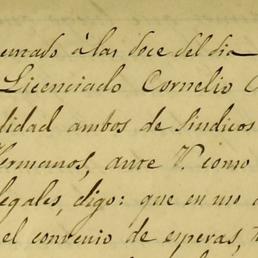 à las doce del dia
Licenciado Cornelio
lidad ambos de Síndicos
Hermanos, ante V. como
legales, digo: que en uso
el convenio de esperas,